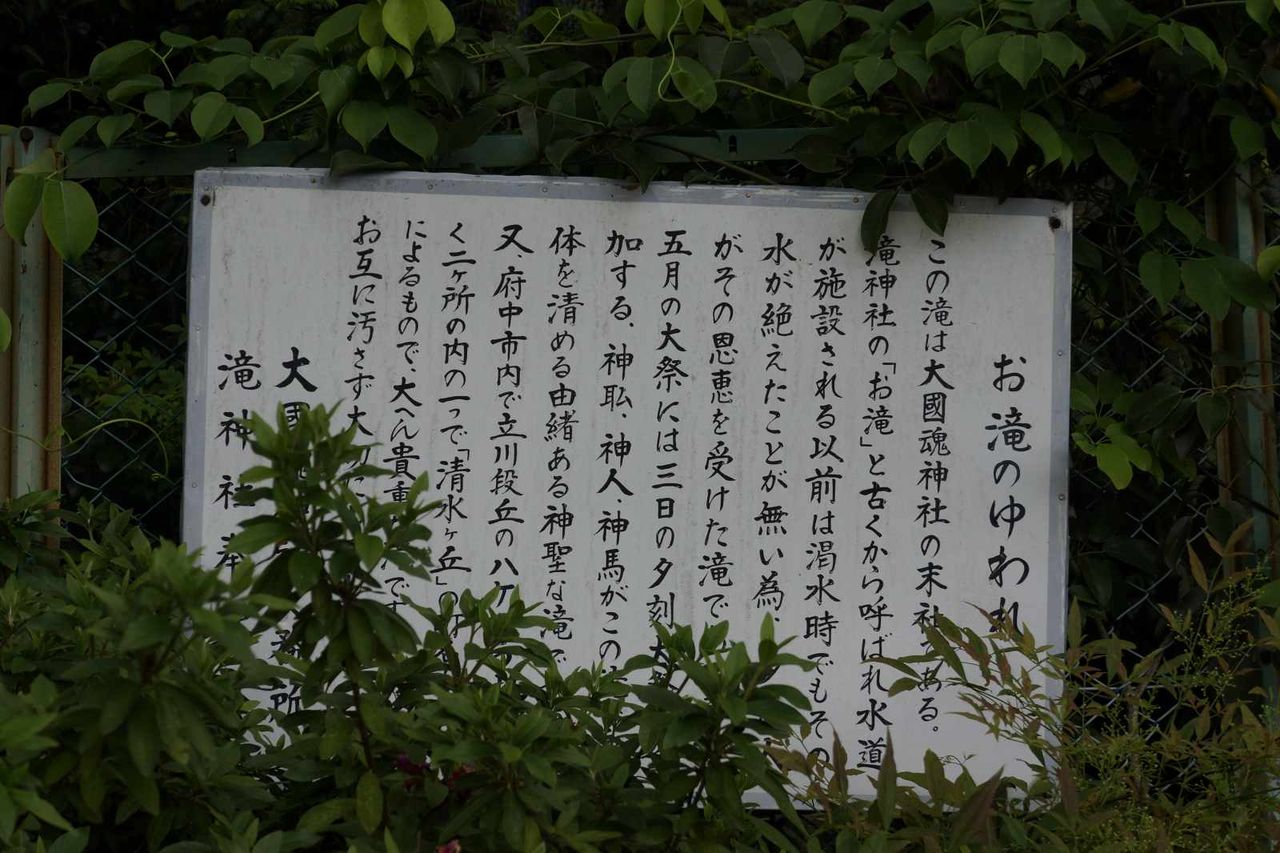 お滝のゆわれ
この滝は大國魂神社の末社である。
滝神社の「お滝」と古くから呼ばれ水道
が施設される以前は渇水時でもその
水が絶えたことが無い為、
がその恩恵を受けた滝で
五月の大祭には三日の夕刻
加する、神職、神人、神馬がこの
体を清める由緒ある神聖な滝で
又、府中市内で立川段丘のハケ
く二ヶ所の内の一つで「清水ヶ丘」の
によるもので、大へん貴重 です
お互に汚さず大
大國 所
滝神社奉